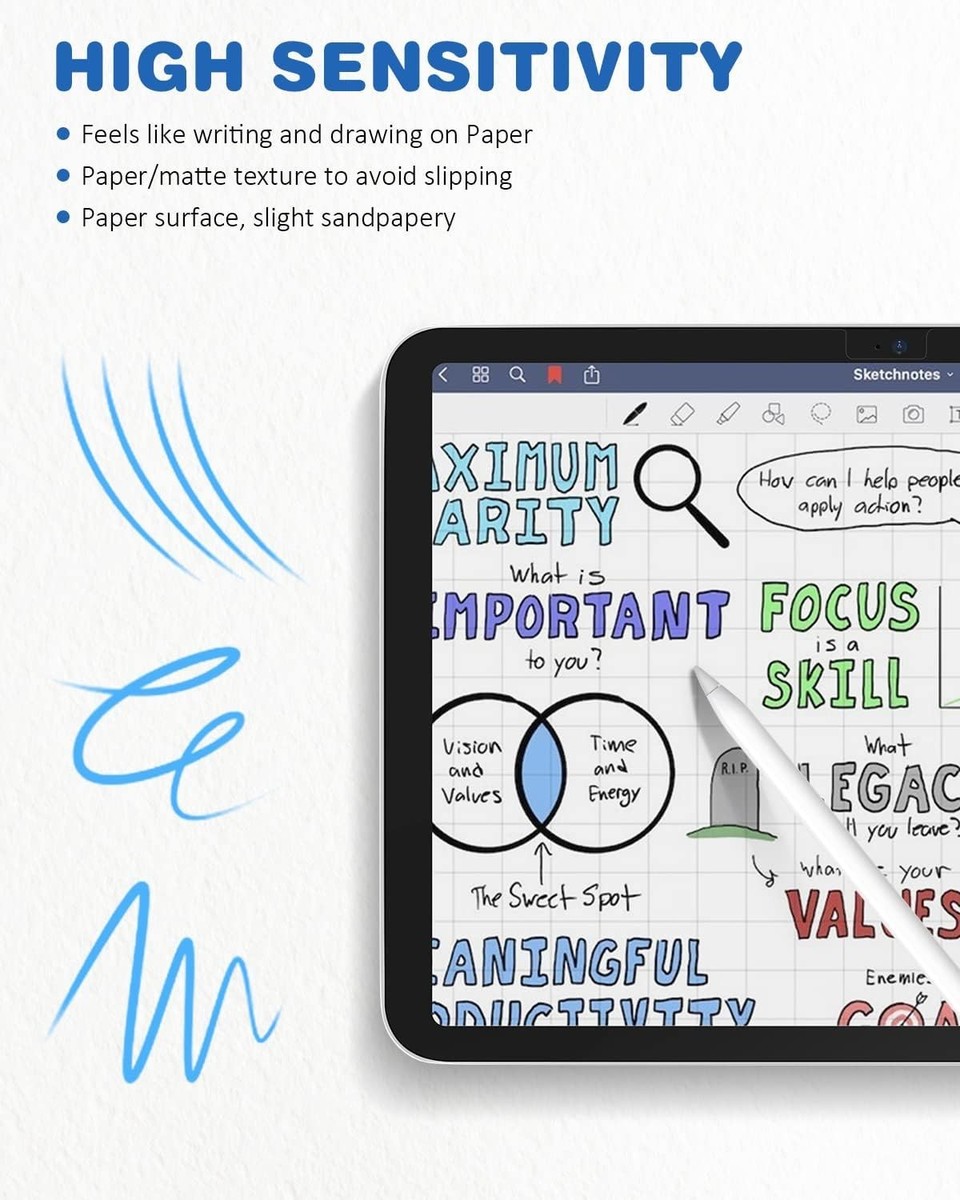 HIGH SENSITIVITY
Feels like writing and drawing on Paper
Paper/matte texture to avoid slipping
Paper surface, slight sandpapery
Sketchnotes
AXIMUM
ARITY
How can I help people
apply action?
What is
IMPORTANT
to you?
FOCUS
is a
SKILL
Vision
and
Values
Time
and
Energy
The Sweet Spot
R.I.P.
What
LEGAC
ll you leave?
your
VALUES
EANINGFUL
ODUCTIVITY
Enemie